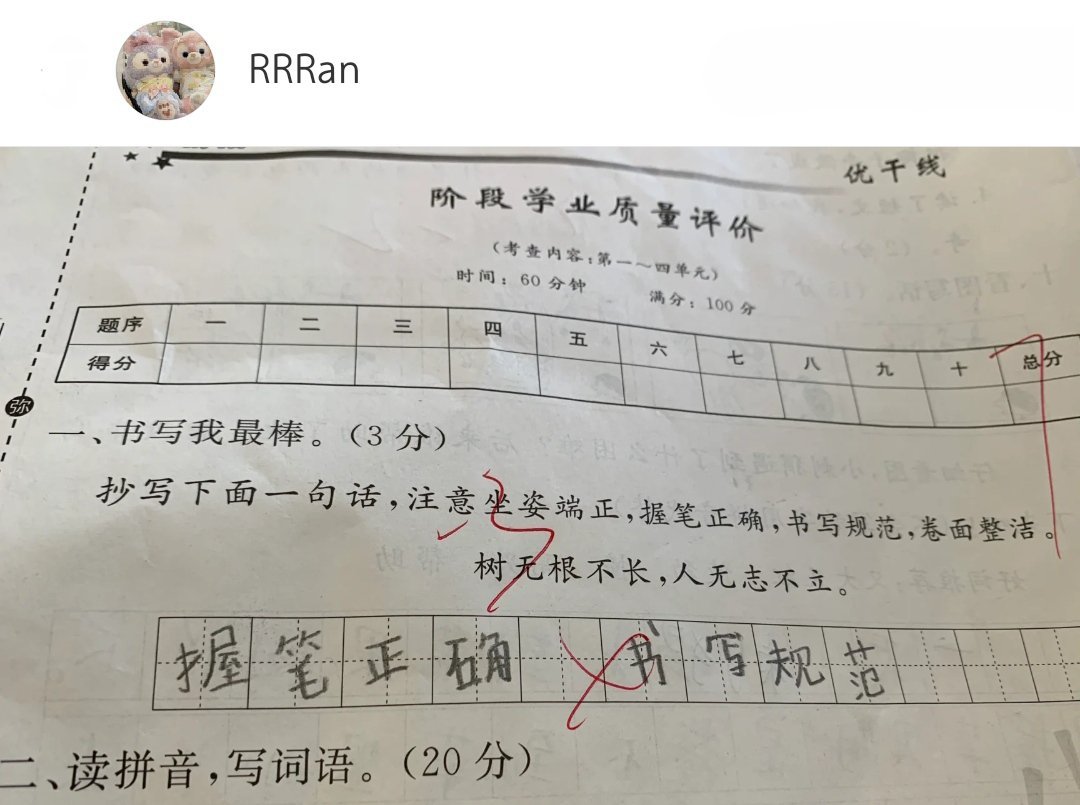 RRRan
优干线
阶段学业质量评价
(考查内容:第一~四单元)
时间:60分钟 满分:100分
题序 一 二 三 四 五 六 七 八 九 十 总分
得分
弥
一、书写我最棒。(3分)
抄写下面一句话,注意坐姿端正,握笔正确,书写规范,卷面整洁。
树无根不长,人无志不立。
握笔正确 书写规范
二、读拼音,写词语。(20分)